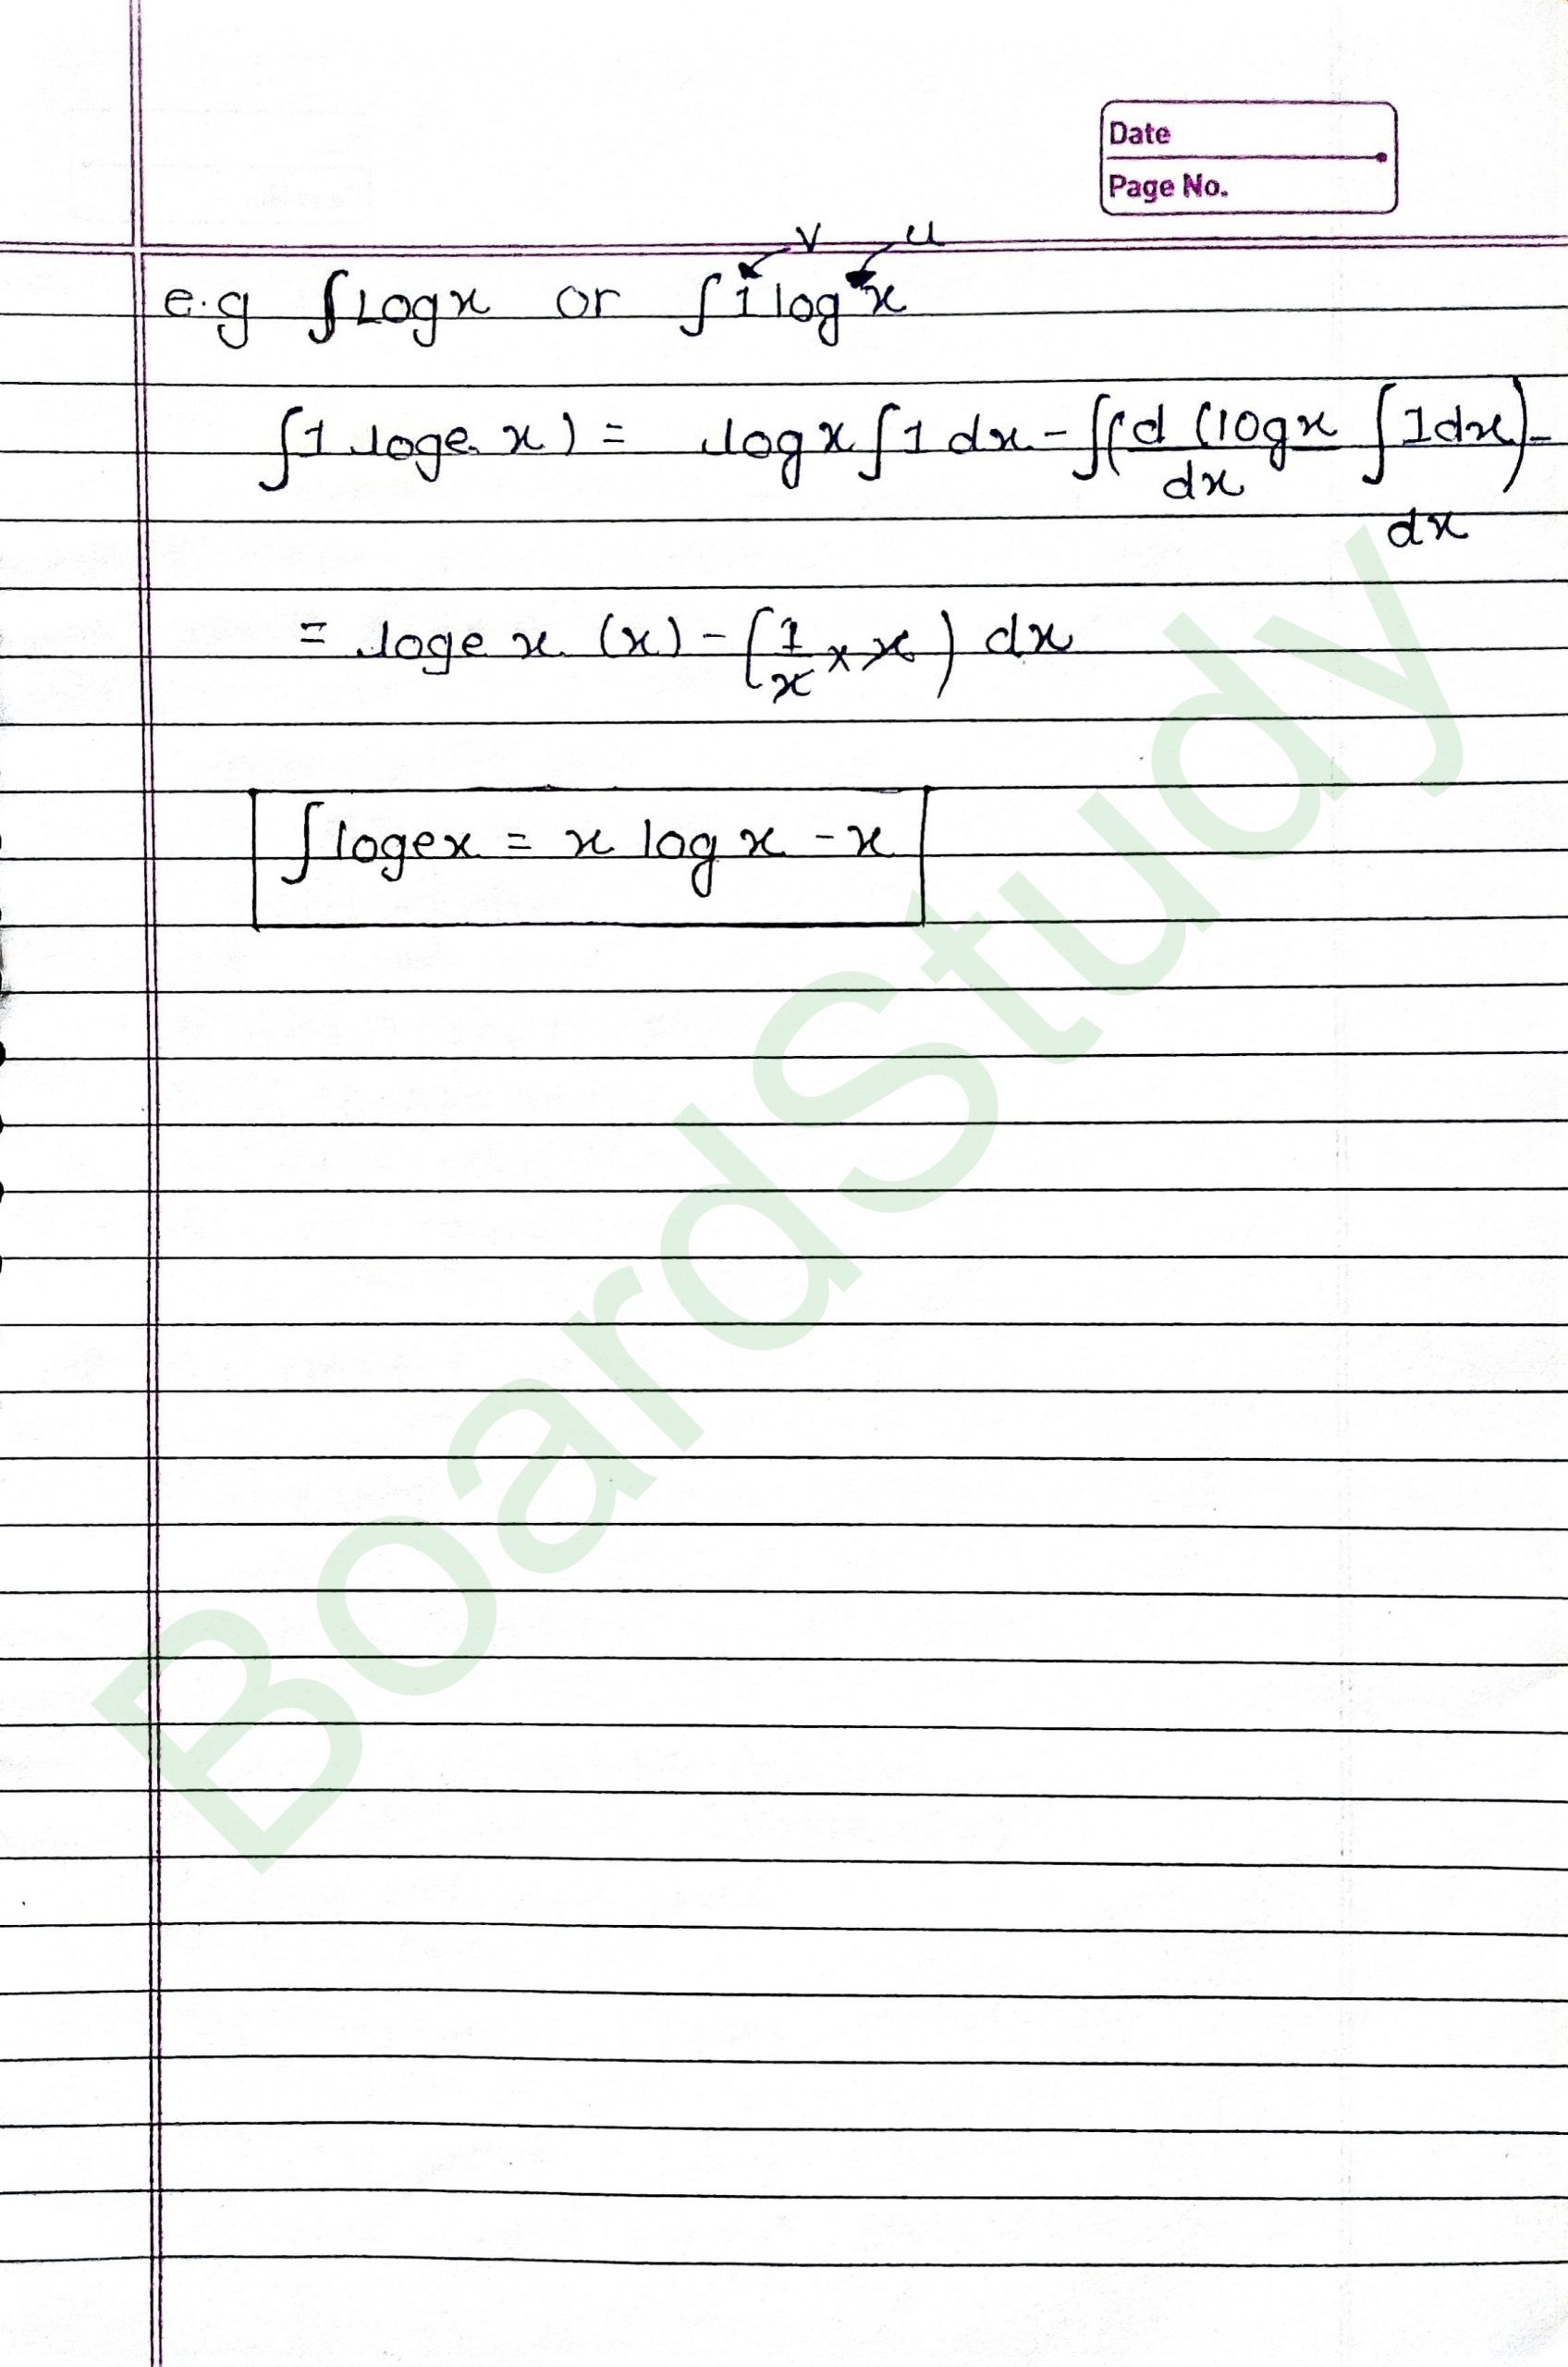 Date
Page No.
v u
e.g ∫Logx or ∫1 log x
∫1 loge x) = log x ∫1 dx - ∫(d/dx (log x ∫1dx) -
dx
= loge x (x) - (1/x × x) dx
∫logex = x log x - x
BoardStudy